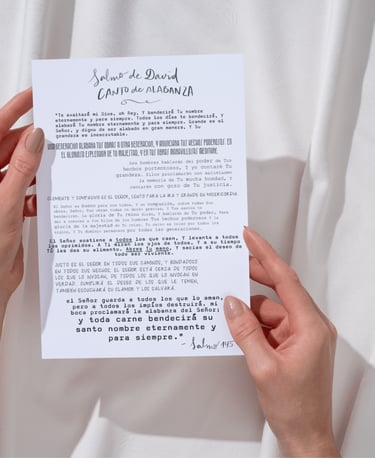 Salmo de David
CANTO de ALABANZA
"Te exaltaré mi Dios, oh Rey, Y bendeciré Tu nombre
eternamente y para siempre. Todos los días te bendeciré, y
alabaré Tu nombre eternamente y para siempre. Grande es el
Señor, y digno de ser alabado en gran manera, Y Su
grandeza es inescrutable.
UNA GENERACIÓN ALABARÁ TUS OBRAS A OTRA GENERACIÓN, Y ANUNCIARÁ TUS HECHOS PODEROSOS. EN
EL GLORIOSO ESPLENDOR DE TU MAJESTAD, Y EN TUS OBRAS MARAVILLOSAS MEDITARÉ.
Los hombres hablarán del poder de Tus
hechos portentosos, Y yo contaré Tu
grandeza. Ellos proclamarán con entusiasmo
la memoria de Tu mucha bondad, Y
cantarán con gozo de Tu justicia.
CLEMENTE Y COMPASIVO ES EL SEÑOR, LENTO PARA LA IRA Y GRANDE EN MISERICORDIA
El Señor es bueno para con todos, Y su compasión, sobre todas Sus
obras. Señor, Tus obras todas te darán gracias, Y Tus santos te
bendecirán. La gloria de Tu reino dirán, Y hablarán de Tu poder, Para
dar a conocer a los hijos de los hombres Tus hechos poderosos Y la
gloria de la majestad de Tu reino. Tu reino es reino por todos los
siglos, Y Tu dominio permanece por todas las generaciones.
El Señor sostiene a todos los que caen, Y levanta a todos
los oprimidos. A Ti miran los ojos de todos, Y a su tiempo
Tú les das su alimento. Abres Tu mano, Y sacias el deseo de
todo ser viviente.
JUSTO ES EL SEÑOR EN TODOS SUS CAMINOS, Y BONDADOSO
EN TODOS SUS HECHOS. EL SEÑOR ESTÁ CERCA DE TODOS
LOS QUE LO INVOCAN, DE TODOS LOS QUE LO INVOCAN EN
VERDAD. CUMPLIRÁ EL DESEO DE LOS QUE LE TEMEN,
TAMBIÉN ESCUCHARÁ SU CLAMOR Y LOS SALVARÁ.
el Señor guarda a todos los que lo aman,
pero a todos los impíos destruirá. mi
boca proclamará la alabanza del Señor;
y toda carne bendecirá su
santo nombre eternamente y
para siempre."
- Salmo 145